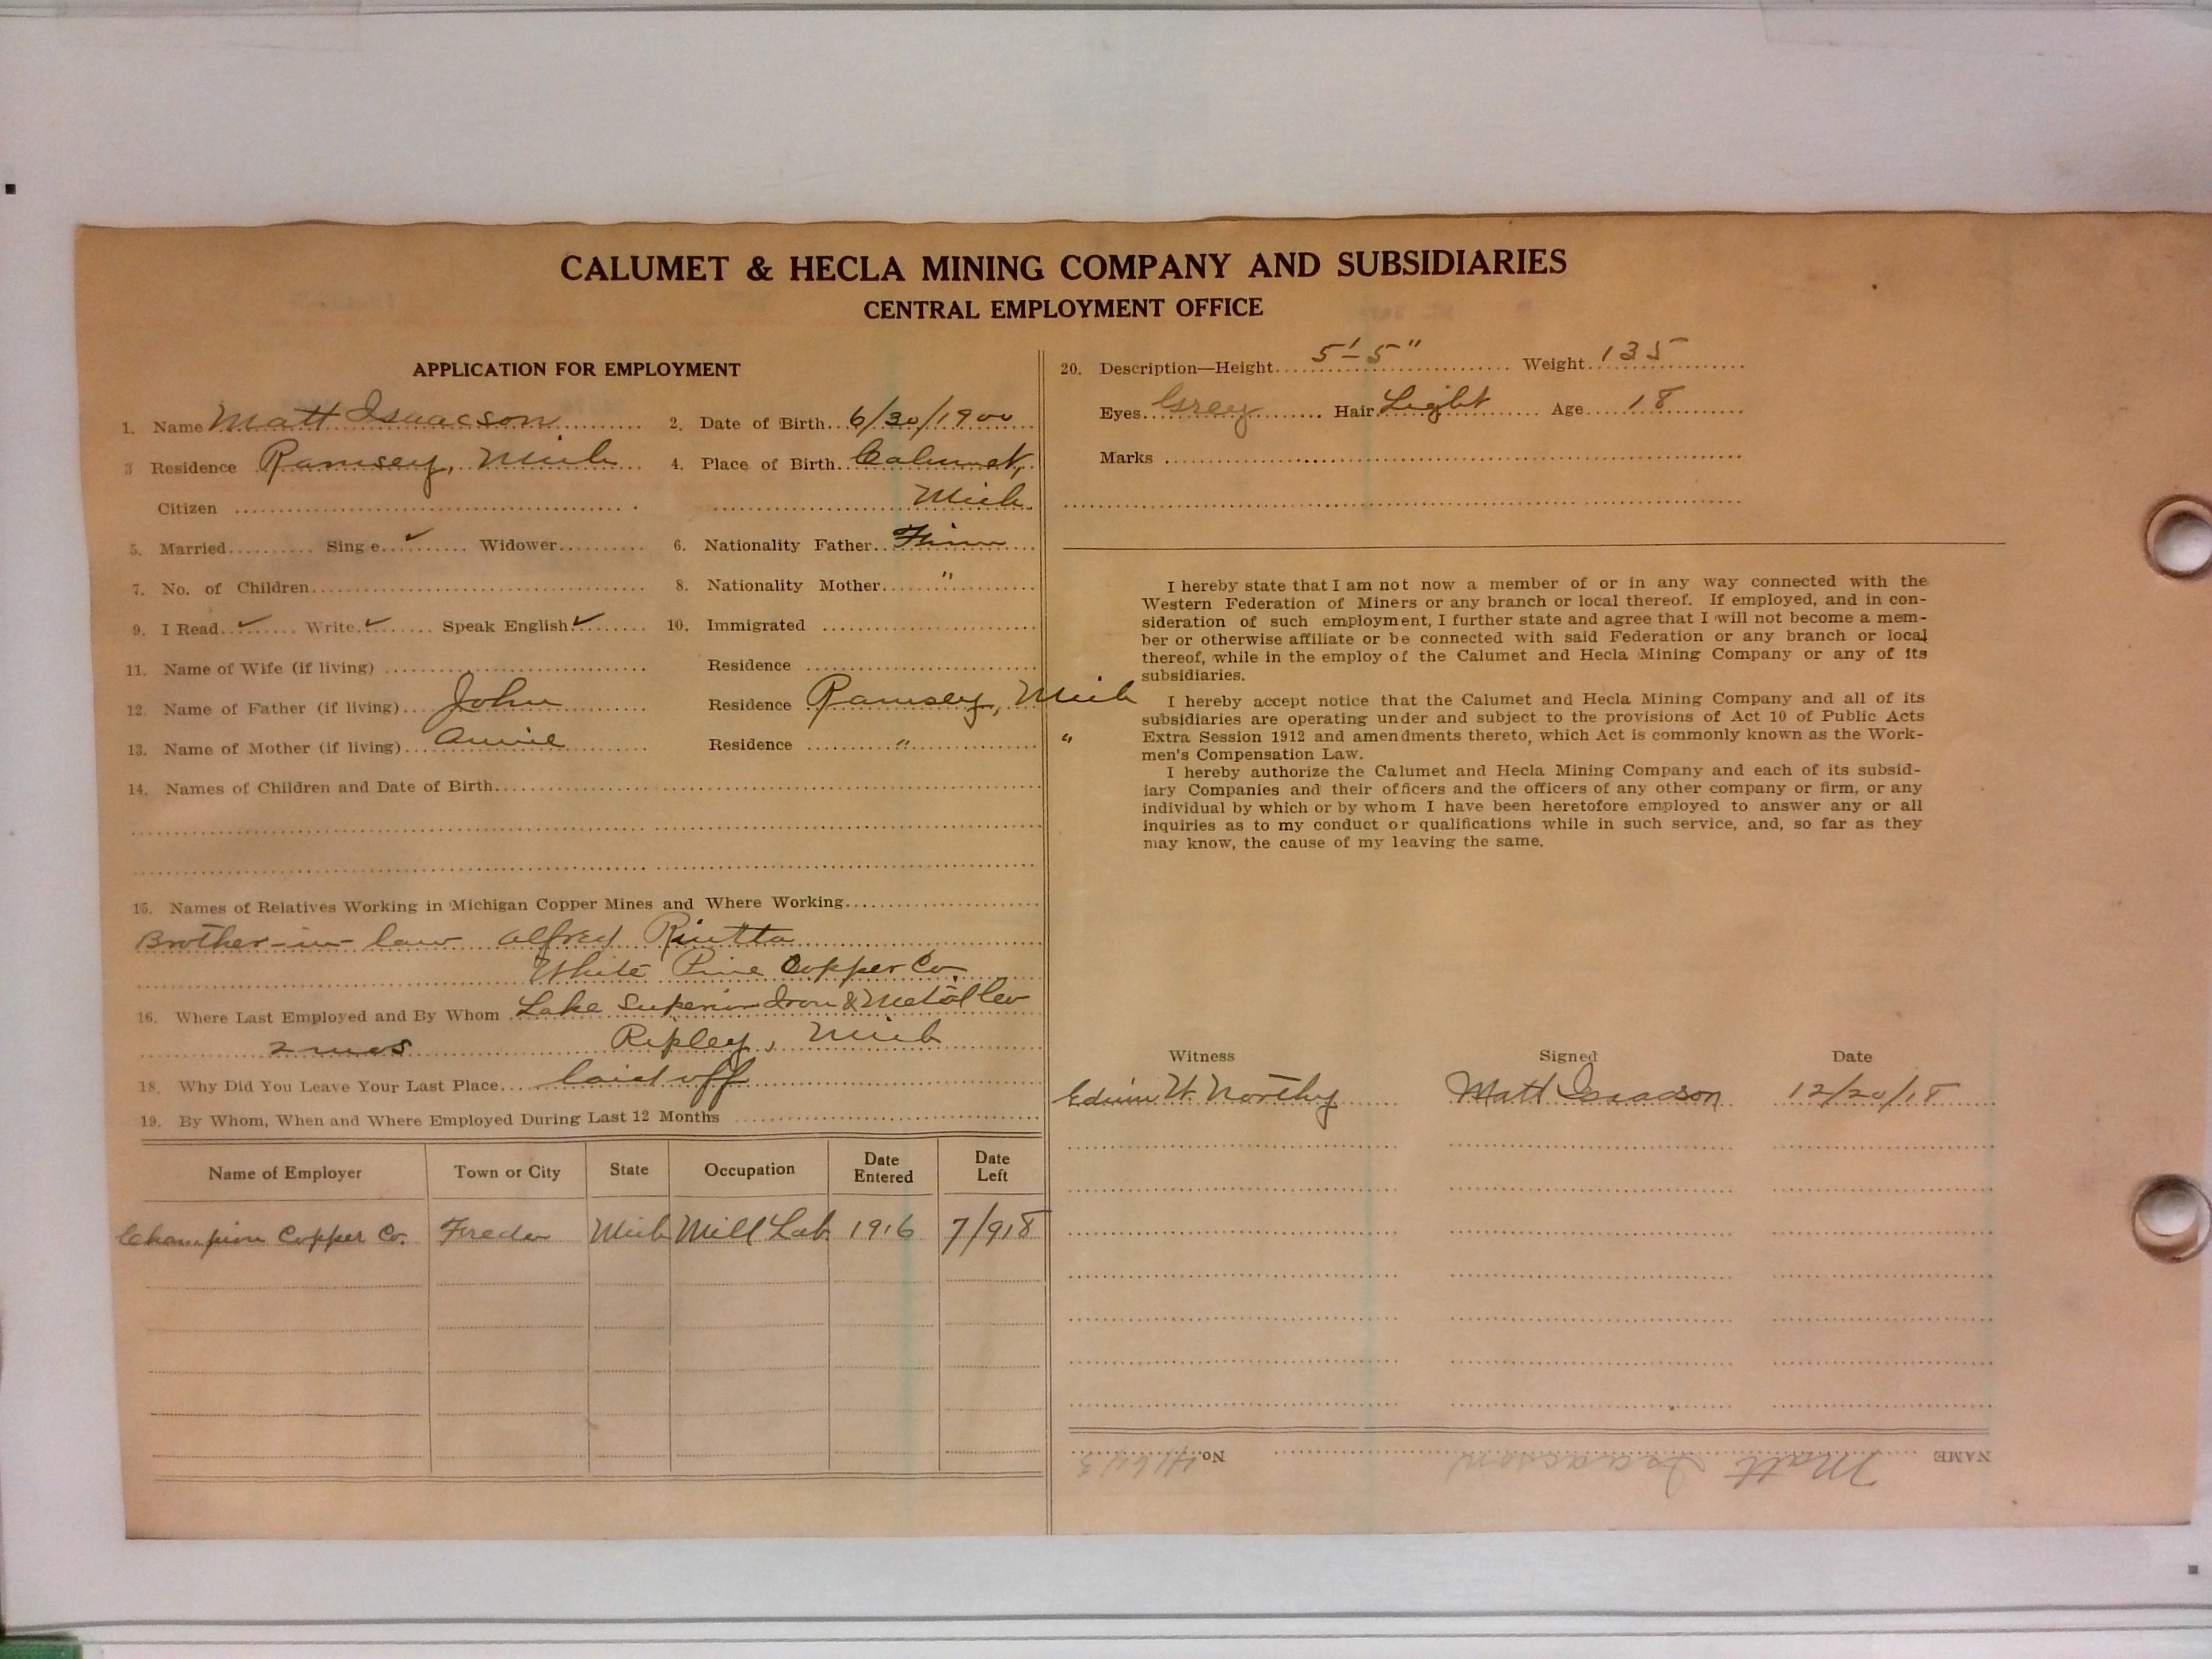 CALUMET & HECLA MINING COMPANY AND SUBSIDIARIES
CENTRAL EMPLOYMENT OFFICE
APPLICATION FOR EMPLOYMENT
1. Name Matt Isaacson 2. Date of Birth 6/30/1900
3 Residence Ramsey, Mich 4. Place of Birth Calumet,
Citizen Mich
5. Married Sing e ✓ Widower 6. Nationality Father Finn
7. No. of Children 8. Nationality Mother "
9. I Read ✓ Write ✓ Speak English ✓ 10. Immigrated
11. Name of Wife (if living) Residence
12. Name of Father (if living) John Residence Ramsey, Mich
13. Name of Mother (if living) Annie Residence " "
14. Names of Children and Date of Birth
15. Names of Relatives Working in Michigan Copper Mines and Where Working
Brother-in-law Alfred
White Pine Copper Co.
16. Where Last Employed and By Whom Lake Superior Iron & Metal
2 mos Ripley, Mich
18. Why Did You Leave Your Last Place laid off
19. By Whom, When and Where Employed During Last 12 Months
Name of Employer Town or City State Occupation Date Entered Date Left
Champion Copper Co. Freda Mich Mill Lab 1916 7/918
20. Description—Height 5'-5" Weight 135
Eyes Grey Hair Light Age 18
Marks
I hereby state that I am not now a member of or in any way connected with the
Western Federation of Miners or any branch or local thereof. If employed, and in con-
sideration of such employment, I further state and agree that I will not become a mem-
ber or otherwise affiliate or be connected with said Federation or any branch or local
thereof, while in the employ of the Calumet and Hecla Mining Company or any of its
subsidiaries.
I hereby accept notice that the Calumet and Hecla Mining Company and all of its
subsidiaries are operating under and subject to the provisions of Act 10 of Public Acts
Extra Session 1912 and amendments thereto, which Act is commonly known as the Work-
men's Compensation Law.
I hereby authorize the Calumet and Hecla Mining Company and each of its subsid-
iary Companies and their officers and the officers of any other company or firm, or any
individual by which or by whom I have been heretofore employed to answer any or all
inquiries as to my conduct or qualifications while in such service, and, so far as they
may know, the cause of my leaving the same.
Witness Signed Date
Edwin W. Northey Matt Isaacson 12/20/18
NAME Matt Isaacson No.